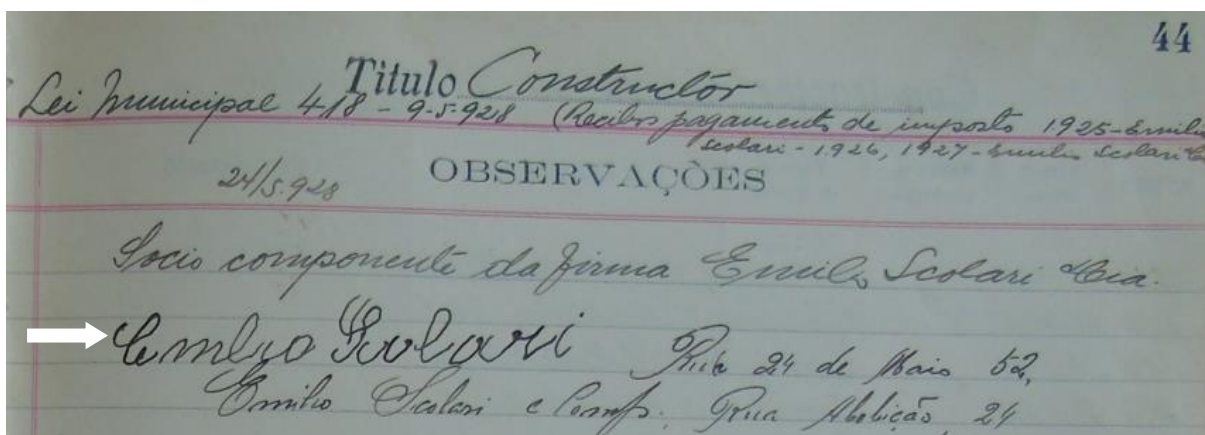 44
Titulo Constructor
Lei Municipal 418 - 9-5-928 (Recibos pagamento de imposto 1925 - Emilio
Scolari - 1926, 1927 - Emilio Scolari
24/5.928 OBSERVAÇÕES
Socio componente da firma Emilio Scolari & Cia.
Emilio Scolari Rua 24 de Maio 52,
Emilio Scolari e Comp. Rua Abolição, 24